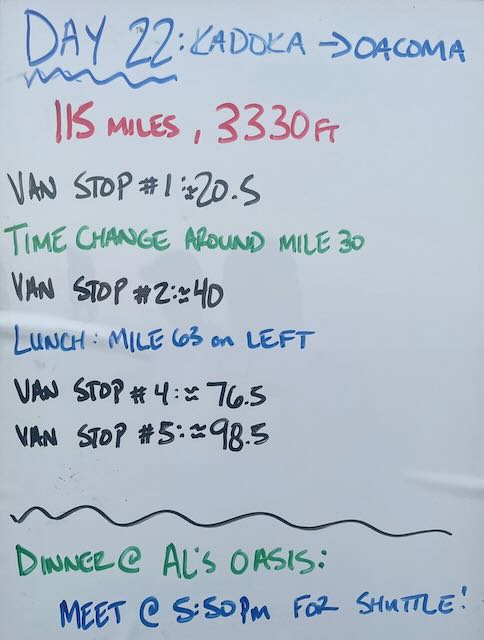 DAY 22: KADOKA → OACOMA
115 MILES, 3330 FT
VAN STOP #1: ≈20.5
TIME CHANGE AROUND MILE 30
VAN STOP #2: ≈40
LUNCH: MILE 63 on LEFT
VAN STOP #4: ≈ 76.5
VAN STOP #5: ≈98.5
DINNER @ AL'S OASIS:
MEET @ 5:50PM FOR SHUTTLE!